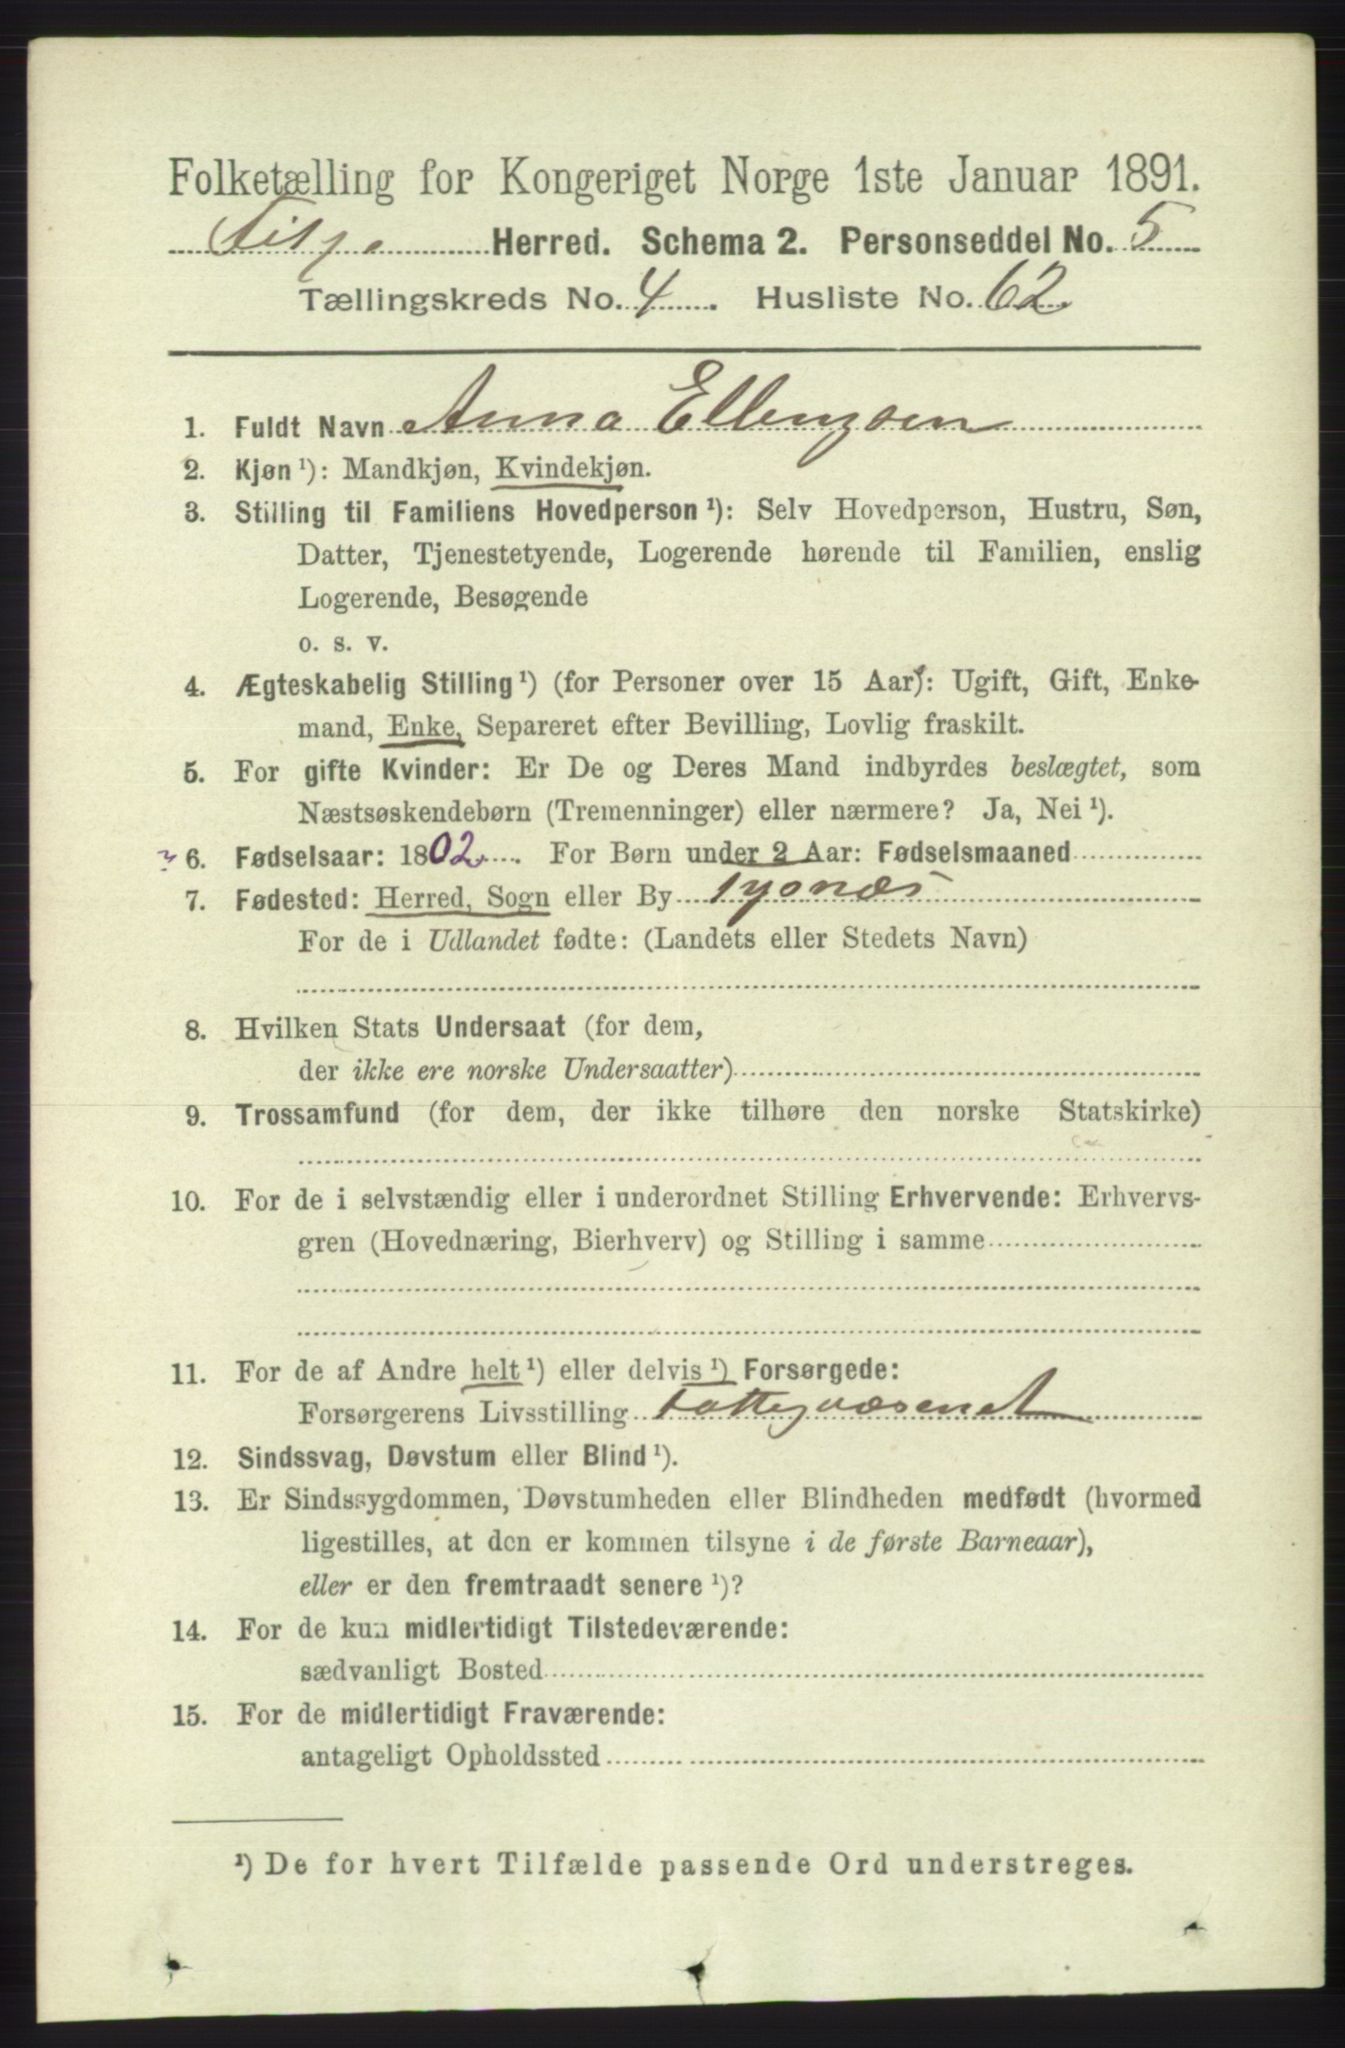 Folketælling for Kongeriget Norge 1ste Januar 1891.
Fitje Herred. Schema 2. Personseddel No. 5
Tællingskreds No. 4. Husliste No. 62.
1. Fuldt Navn Anna Ellingsen
2. Kjøn ¹): Mandkjøn, Kvindekjøn.
3. Stilling til Familiens Hovedperson ¹): Selv Hovedperson, Hustru, Søn,
Datter, Tjenestetyende, Logerende hørende til Familien, enslig
Logerende, Besøgende
o. s. v.
4. Ægteskabelig Stilling ¹) (for Personer over 15 Aar): Ugift, Gift, Enke-
mand, Enke, Separeret efter Bevilling, Lovlig fraskilt.
5. For gifte Kvinder: Er De og Deres Mand indbyrdes beslægtet, som
Næstsøskendebørn (Tremenninger) eller nærmere? Ja, Nei ¹).
6. Fødselsaar: 1802. For Børn under 2 Aar: Fødselsmaaned
7. Fødested: Herred, Sogn eller By Tysnæs
For de i Udlandet fødte: (Landets eller Stedets Navn)
8. Hvilken Stats Undersaat (for dem,
der ikke ere norske Undersaatter)
9. Trossamfund (for dem, der ikke tilhøre den norske Statskirke)
10. For de i selvstændig eller i underordnet Stilling Erhvervende: Erhvervs-
gren (Hovednæring, Bierhverv) og Stilling i samme
11. For de af Andre helt ¹) eller delvis ¹) Forsørgede:
Forsørgerens Livsstilling Fattigvæsenet
12. Sindssvag, Døvstum eller Blind ¹).
13. Er Sindssygdommen, Døvstumheden eller Blindheden medfødt (hvormed
ligestilles, at den er kommen tilsyne i de første Barneaar),
eller er den fremtraadt senere ¹)?
14. For de kun midlertidigt Tilstedeværende:
sædvanligt Bosted
15. For de midlertidigt Fraværende:
antageligt Opholdssted
¹) De for hvert Tilfælde passende Ord understreges.